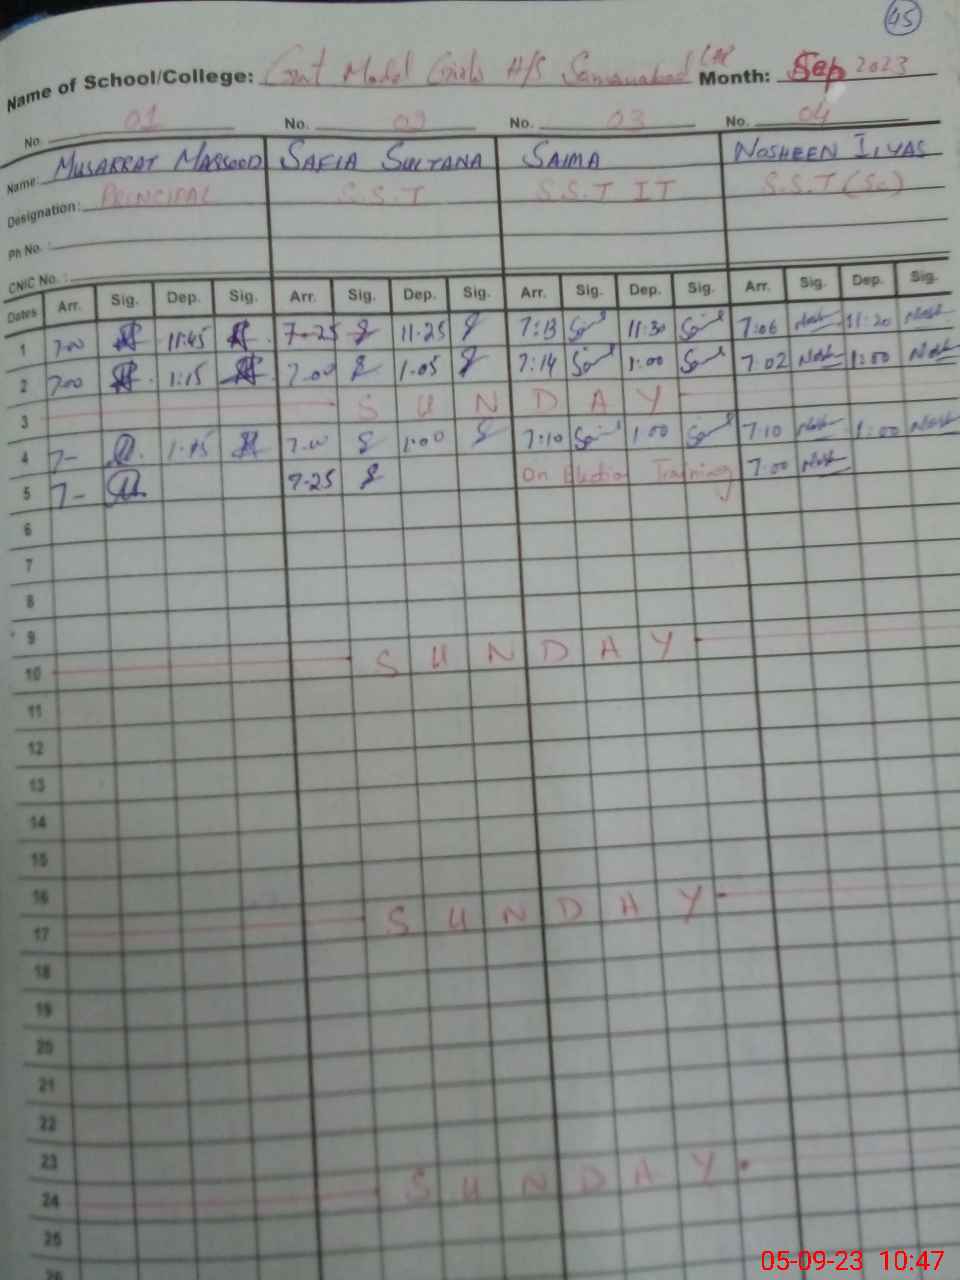 45
Name of School/College: Govt Model Girls H/S Samanabad LHR Month: Sep 2023
No. 01 No. 02 No. 03 No. 04
Name: MUSARRAT MASSOOD SAFIA SULTANA SAIMA NOSHEEN ILYAS
Designation: PRINCIPAL S.S.T S.S.T IT S.S.T (Sc)
Ph No. :
CNIC No. :
Dates Arr. Sig. Dep. Sig. Arr. Sig. Dep. Sig. Arr. Sig. Dep. Sig. Arr. Sig. Dep. Sig.
1 7-00 11:45 7-25 11-25 7:13 11:30 7:06 Nosh 11:20 Nosh
2 7-00 1:15 7-00 1-05 7:14 1:00 7:02 Nosh 1:00 Nosh
3 S U N D A Y
4 7- 1-15 7-00 1:00 7:10 1:00 7:10 Nosh 1:00 Nosh
5 7- 7-25 On Election Training 7:00 Nosh
6
7
8
9
10 S U N D A Y
11
12
13
14
15
16
17 S U N D A Y
18
19
20
21
22
23
24 S U N D A Y
25
26
05-09-23 10:47